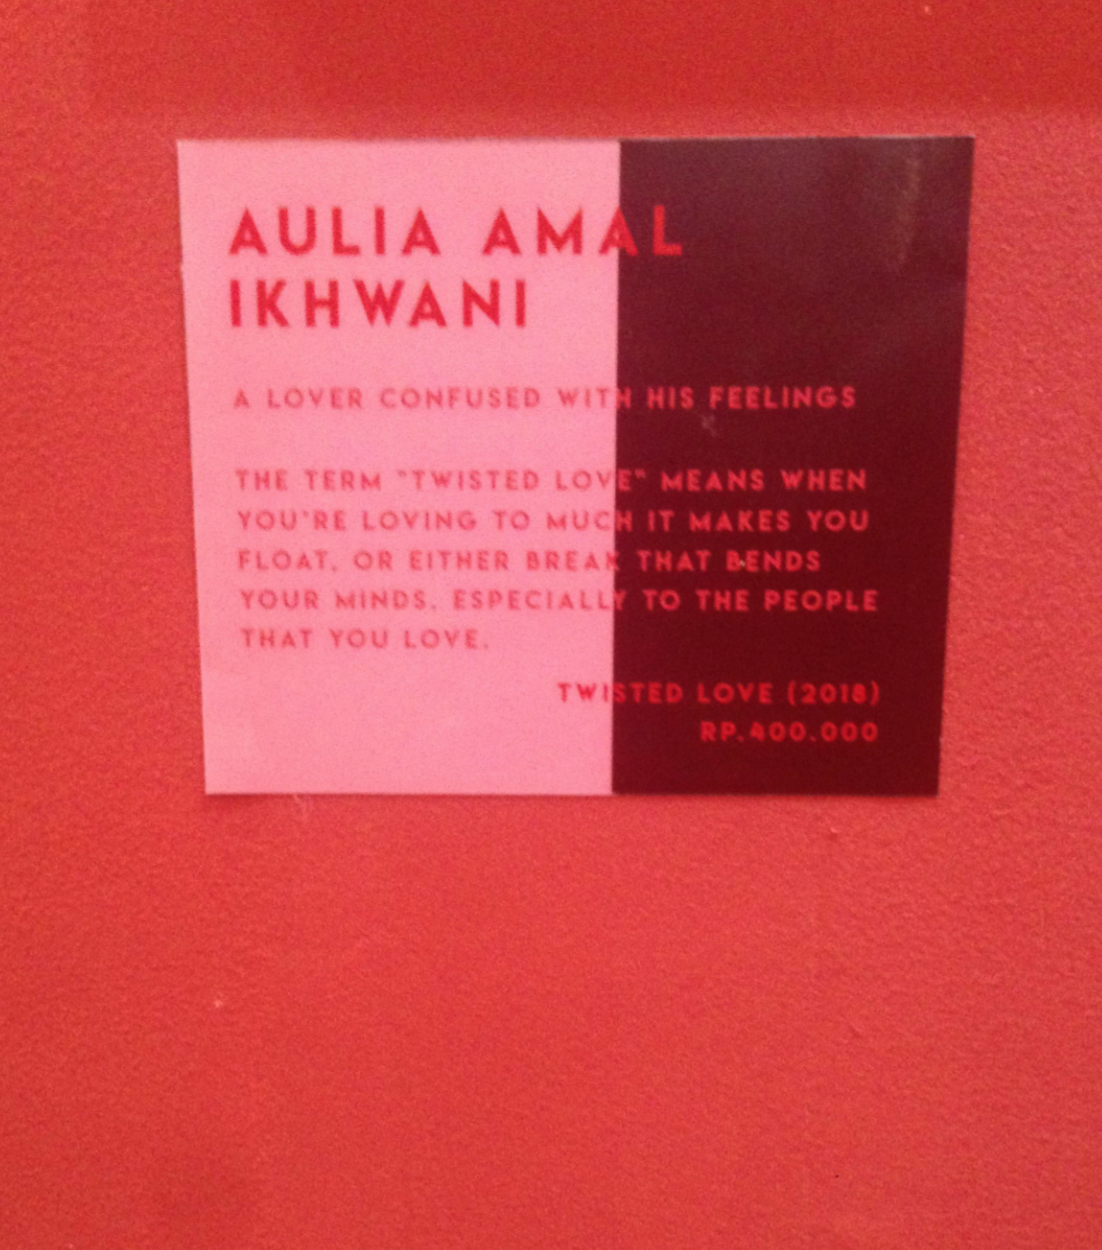 AULIA AMAL
IKHWANI
A LOVER CONFUSED WITH HIS FEELINGS
THE TERM "TWISTED LOVE" MEANS WHEN
YOU'RE LOVING TO MUCH IT MAKES YOU
FLOAT, OR EITHER BREAK THAT BENDS
YOUR MINDS, ESPECIALLY TO THE PEOPLE
THAT YOU LOVE.
TWISTED LOVE (2018)
RP.400.000